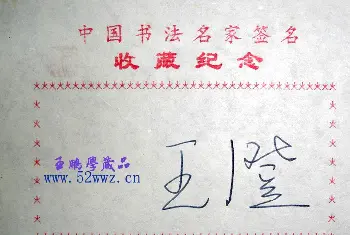 中国书法名家签名
收藏纪念
王鹏学藏品
www.52wwz.cn
王澄